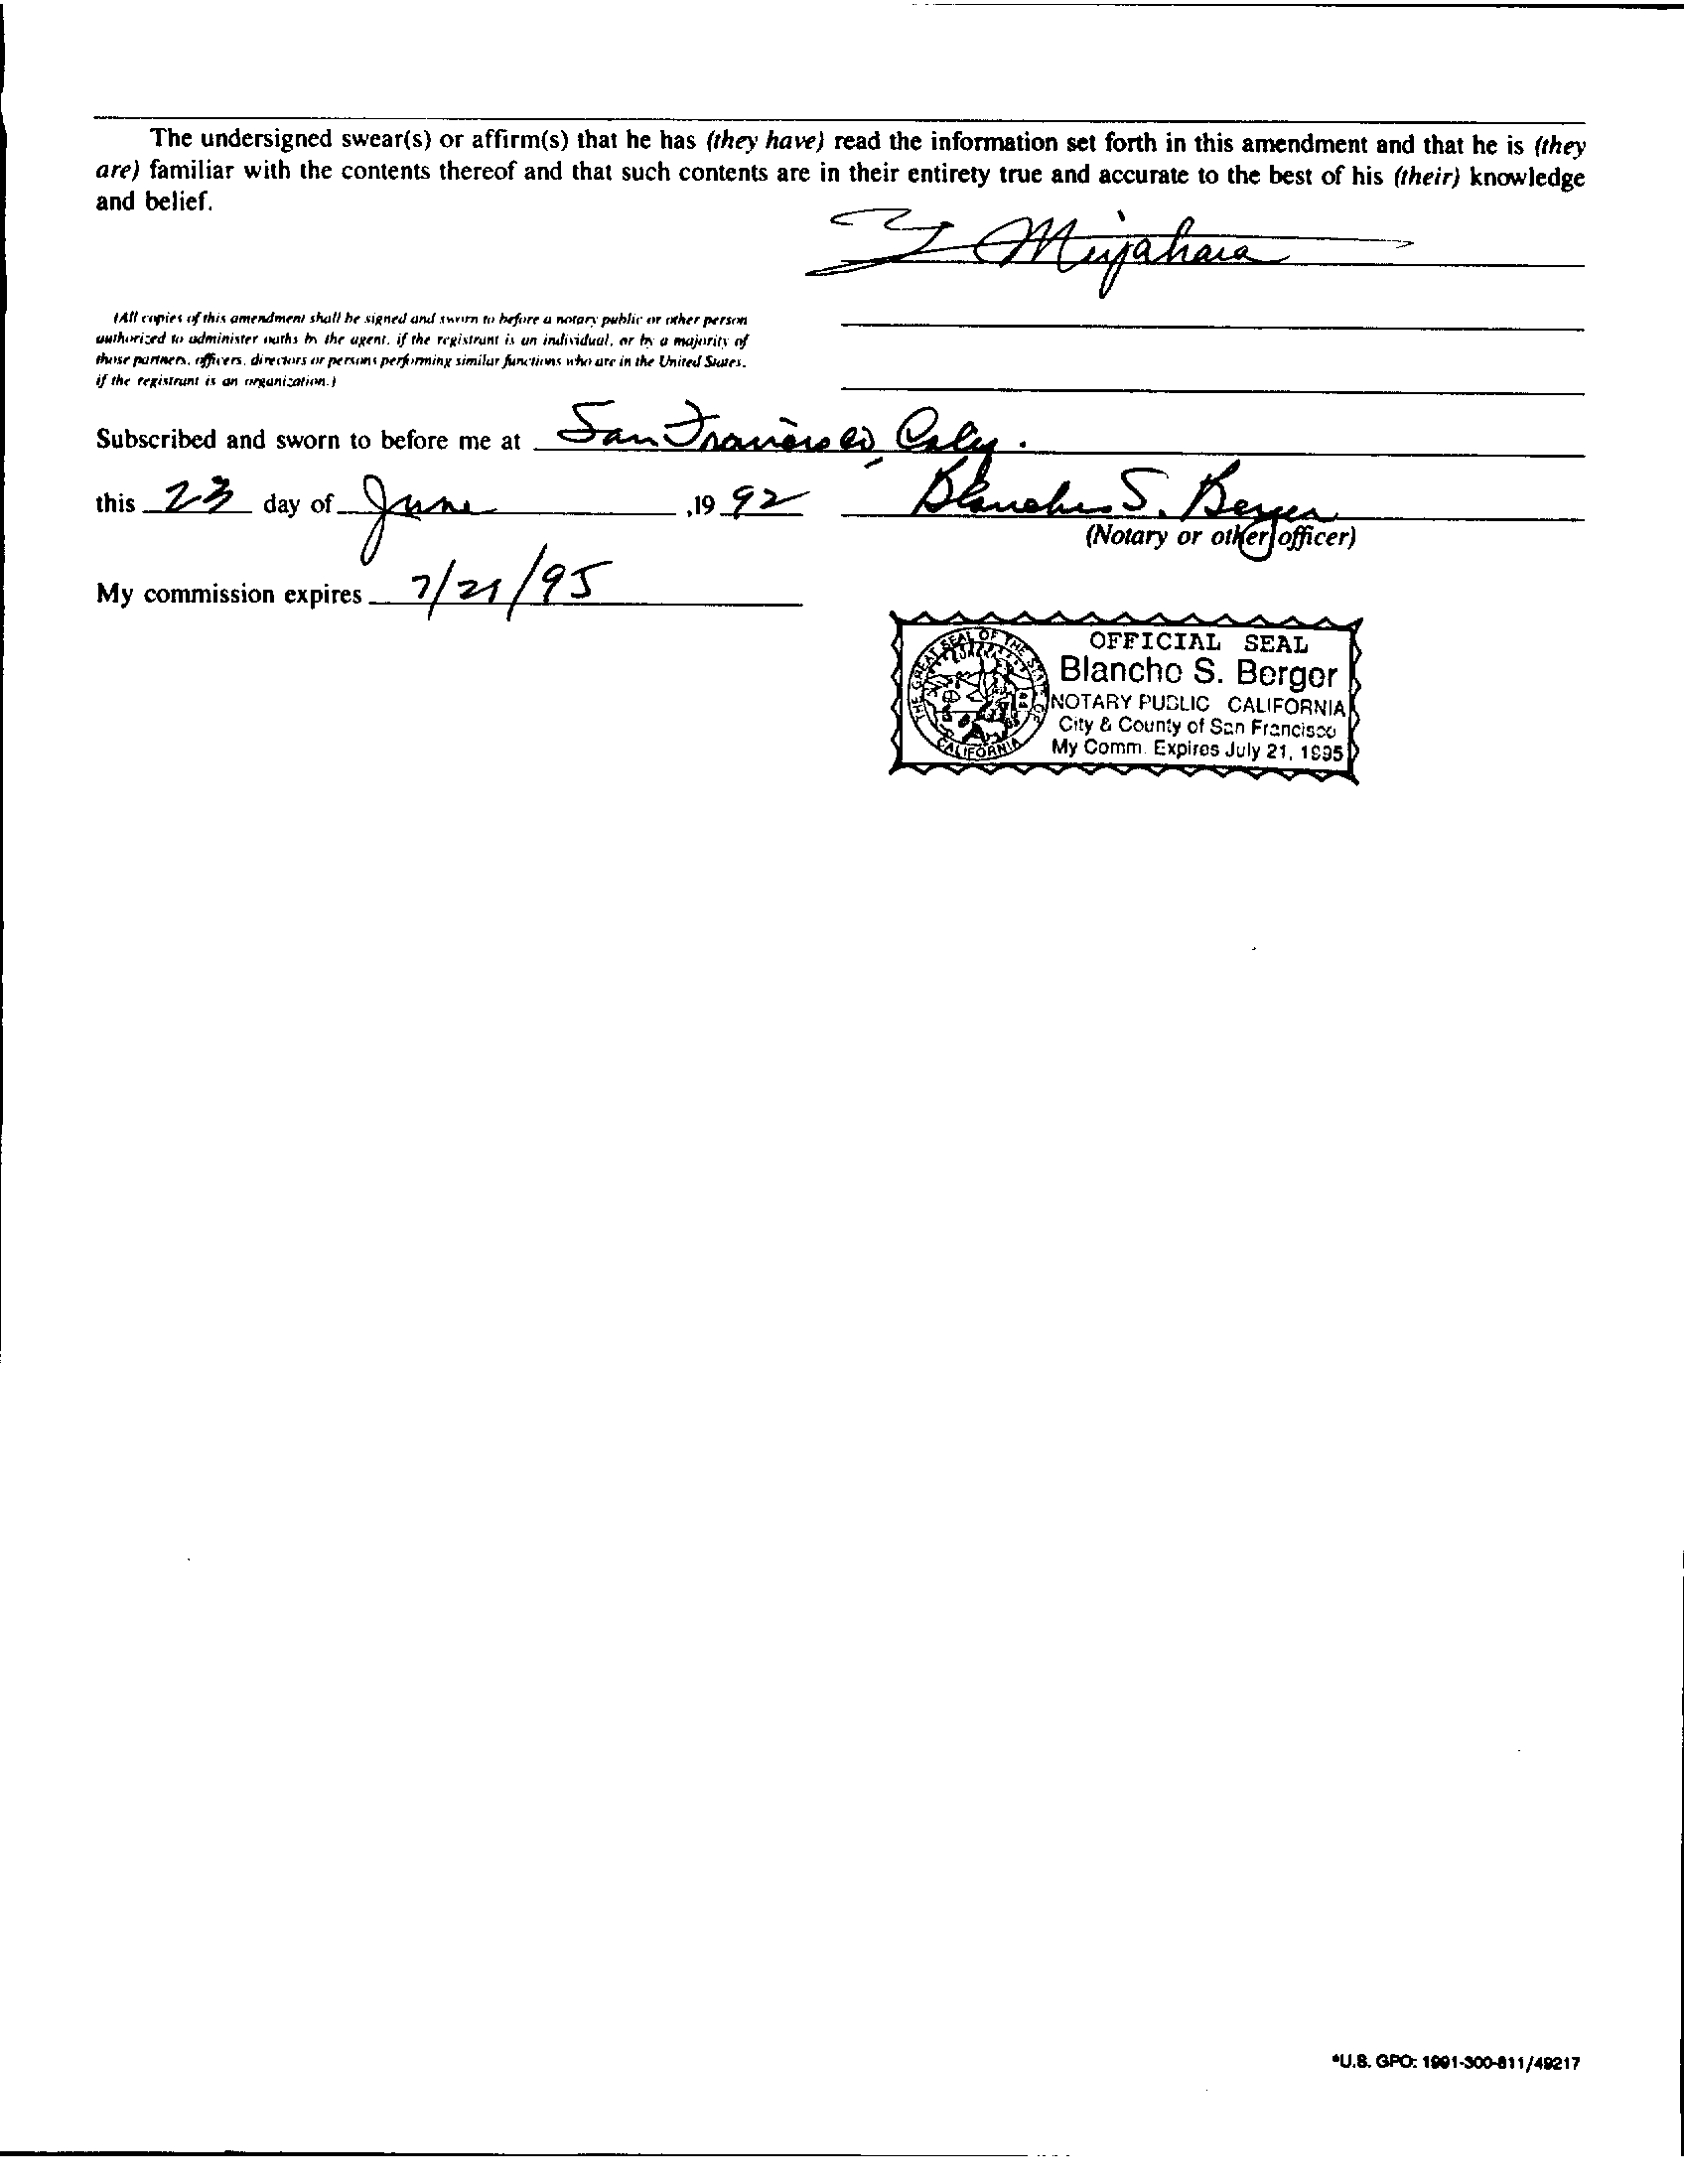 The undersigned swear(s) or affirm(s) that he has (they have) read the information set forth in this amendment and that he is (they
are) familiar with the contents thereof and that such contents are in their entirety true and accurate to the best of his (their) knowledge
and belief.
Y Miyahara
(All copies of this amendment shall be signed and sworn to before a notary public or other person
authorized to administer oaths by the agent, if the registrant is an individual, or by a majority of
those partners, officers, directors or persons performing similar functions who are in the United States,
if the registrant is an organization.)
Subscribed and sworn to before me at San Francisco, Calif.
this 23 day of June ,19 92 Blanche S. Berger
(Notary or other officer)
My commission expires 7/21/95
THE GREAT SEAL OF THE STATE OF CALIFORNIA
OFFICIAL SEAL
Blanche S. Berger
NOTARY PUBLIC CALIFORNIA
City & County of San Francisco
My Comm. Expires July 21, 1995
*U.S. GPO: 1991-300-811/49217